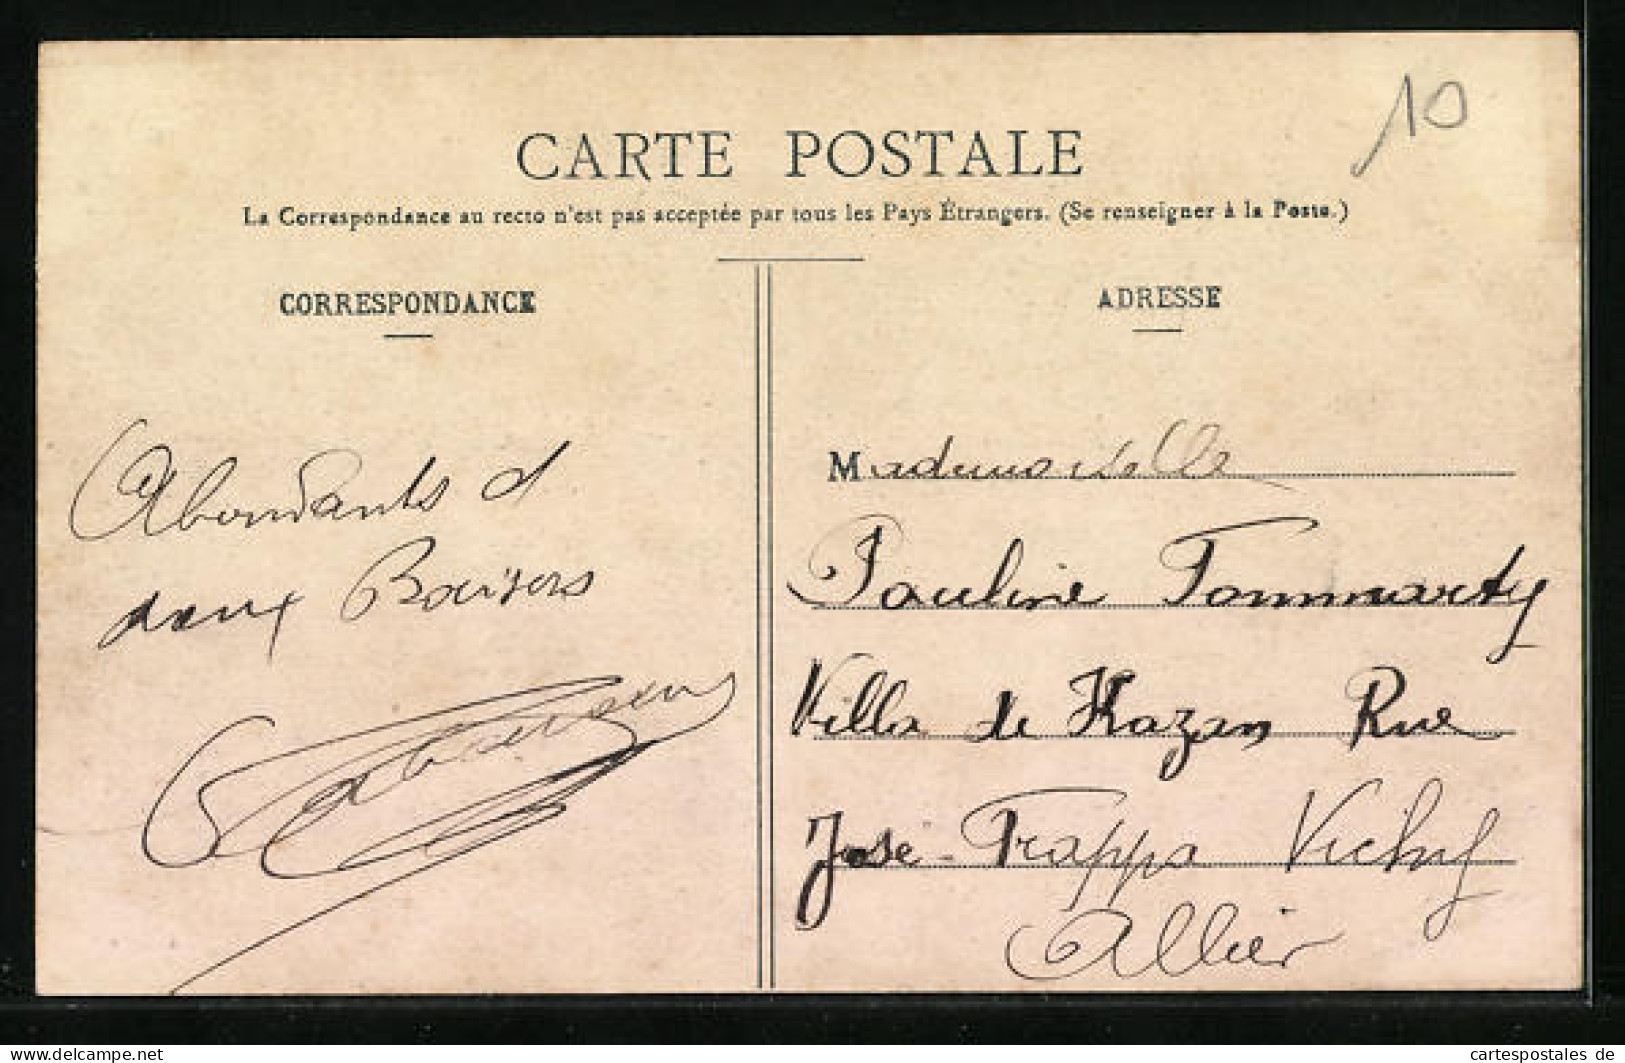 10
CARTE POSTALE
La Correspondance au recto n'est pas acceptée par tous les Pays Étrangers. (Se renseigner à la Poste.)
CORRESPONDANCE
Abondants d
doux Baisers
ADRESSE
Mademoiselle
Pauline Tommarty
Villa de Kazan Rue
José-Frappa Vichy
Allier
cartespostales.de
cartespostales de